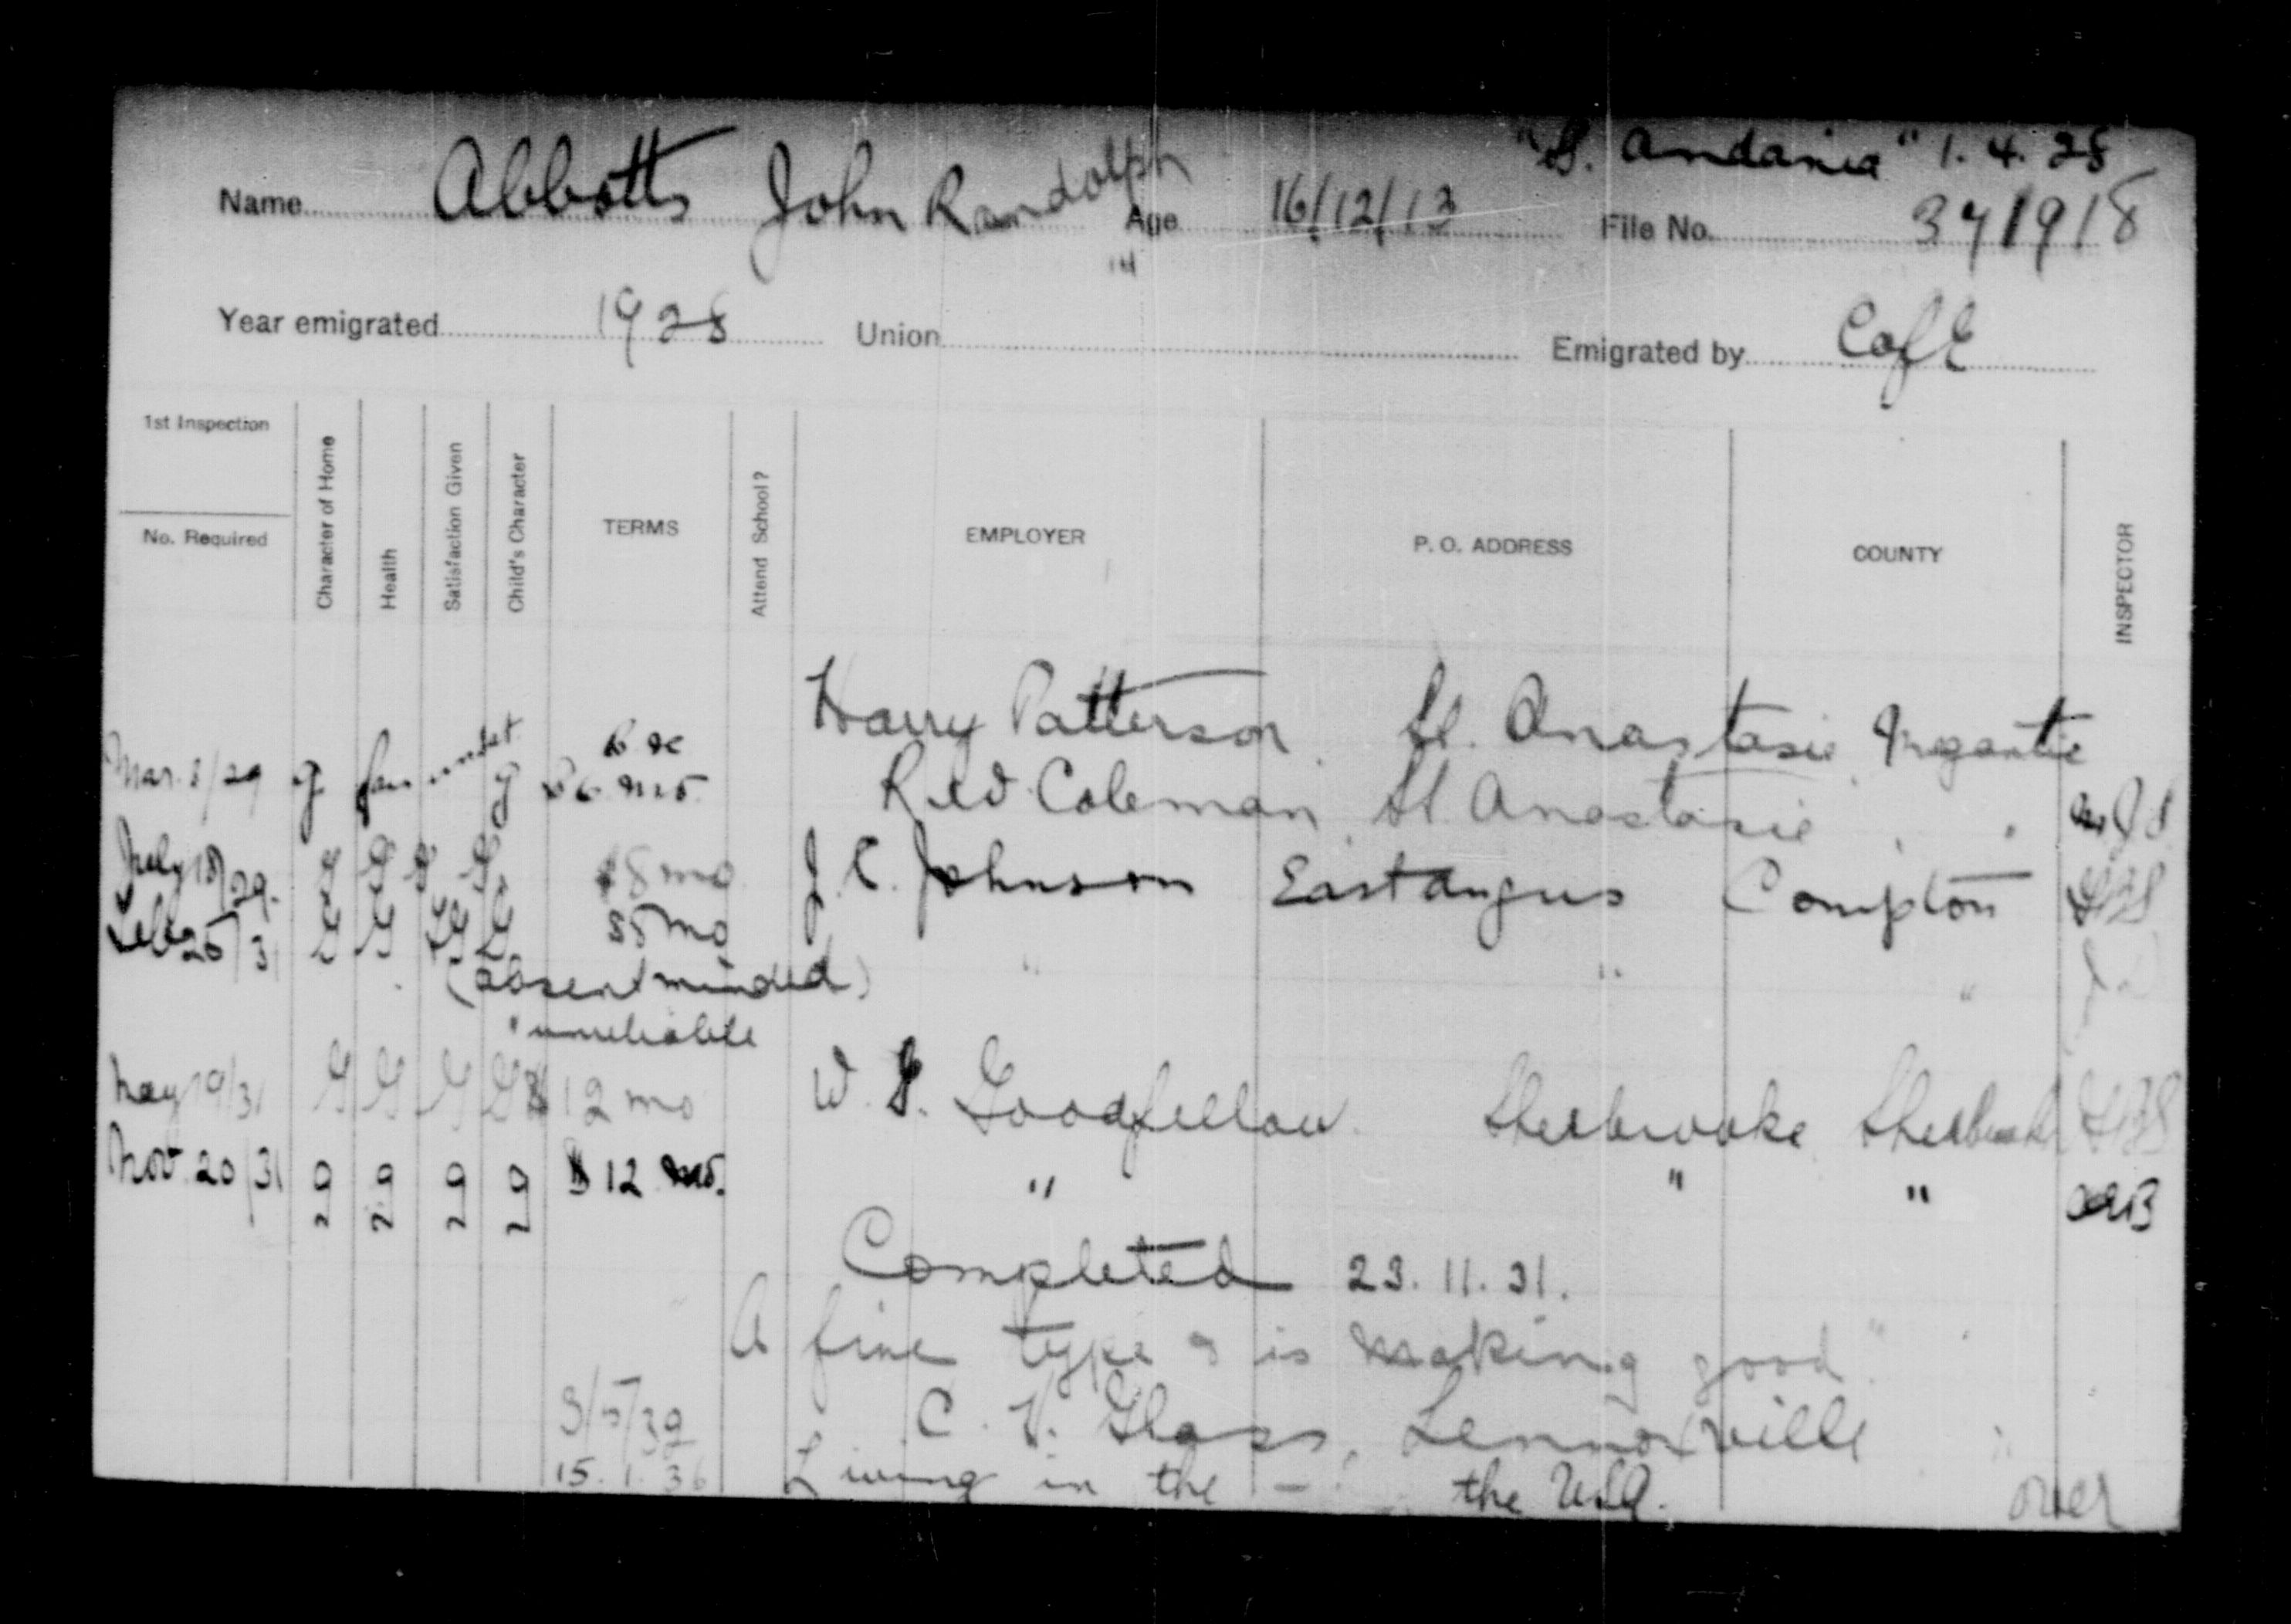 "S. Andania" 1. 4. 28
Name Abbotts John Randolph Age 16/12/13 File No. 341918
14
Year emigrated 1928 Union Emigrated by C of E
1st Inspection
No. Required
Character of Home
Health
Satisfaction Given
Child's Character
TERMS
Attend School?
EMPLOYER
P. O. ADDRESS
COUNTY
INSPECTOR
Harry Patterson St. Anastasie Megantic
Mar. 8/29 g g $6 mo. Coleman St. Anastasie
July 18/29. G G G G $8 mo J. C. Johnson East Angus Compton
Feb 25/31 G G G $5 mo " " "
(absent minded)
" unreliable
May 19/31 G G G G $12 mo W. S. Goodfellow Sherbrooke Sherbrooke
Nov 20/31 g g g g $12 mo. " " "
Completed 23. 11. 31.
A fine type & is making good"
C. V. Glass, Lennoxville
15. 1. 36 Living in the - the USA.
over